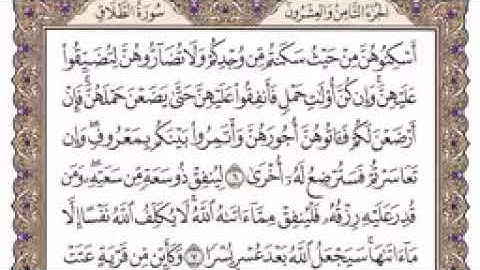 الجزء الثامن والعشرون
سورة الطلاق
أَسْكِنُوهُنَّ مِنْ حَيْثُ سَكَنتُم مِّن وُجْدِكُمْ وَلَا تُضَآرُّوهُنَّ لِتُضَيِّقُوا۟
عَلَيْهِنَّ ۚ وَإِن كُنَّ أُو۟لَٰتِ حَمْلٍ فَأَنفِقُوا۟ عَلَيْهِنَّ حَتَّىٰ يَضَعْنَ حَمْلَهُنَّ ۚ فَإِنْ
أَرْضَعْنَ لَكُمْ فَـَٔاتُوهُنَّ أُجُورَهُنَّ ۖ وَأْتَمِرُوا۟ بَيْنَكُم بِمَعْرُوفٍ ۖ وَإِن
تَعَاسَرْتُمْ فَسَتُرْضِعُ لَهُۥٓ أُخْرَىٰ ٦ لِيُنفِقْ ذُو سَعَةٍ مِّن سَعَتِهِۦ ۖ وَمَن
قُدِرَ عَلَيْهِ رِزْقُهُۥ فَلْيُنفِقْ مِمَّآ ءَاتَىٰهُ ٱللَّهُ ۚ لَا يُكَلِّفُ ٱللَّهُ نَفْسًا إِلَّا
مَآ ءَاتَىٰهَا ۚ سَيَجْعَلُ ٱللَّهُ بَعْدَ عُسْرٍ يُسْرًا ٧ وَكَأَيِّن مِّن قَرْيَةٍ عَتَتْ